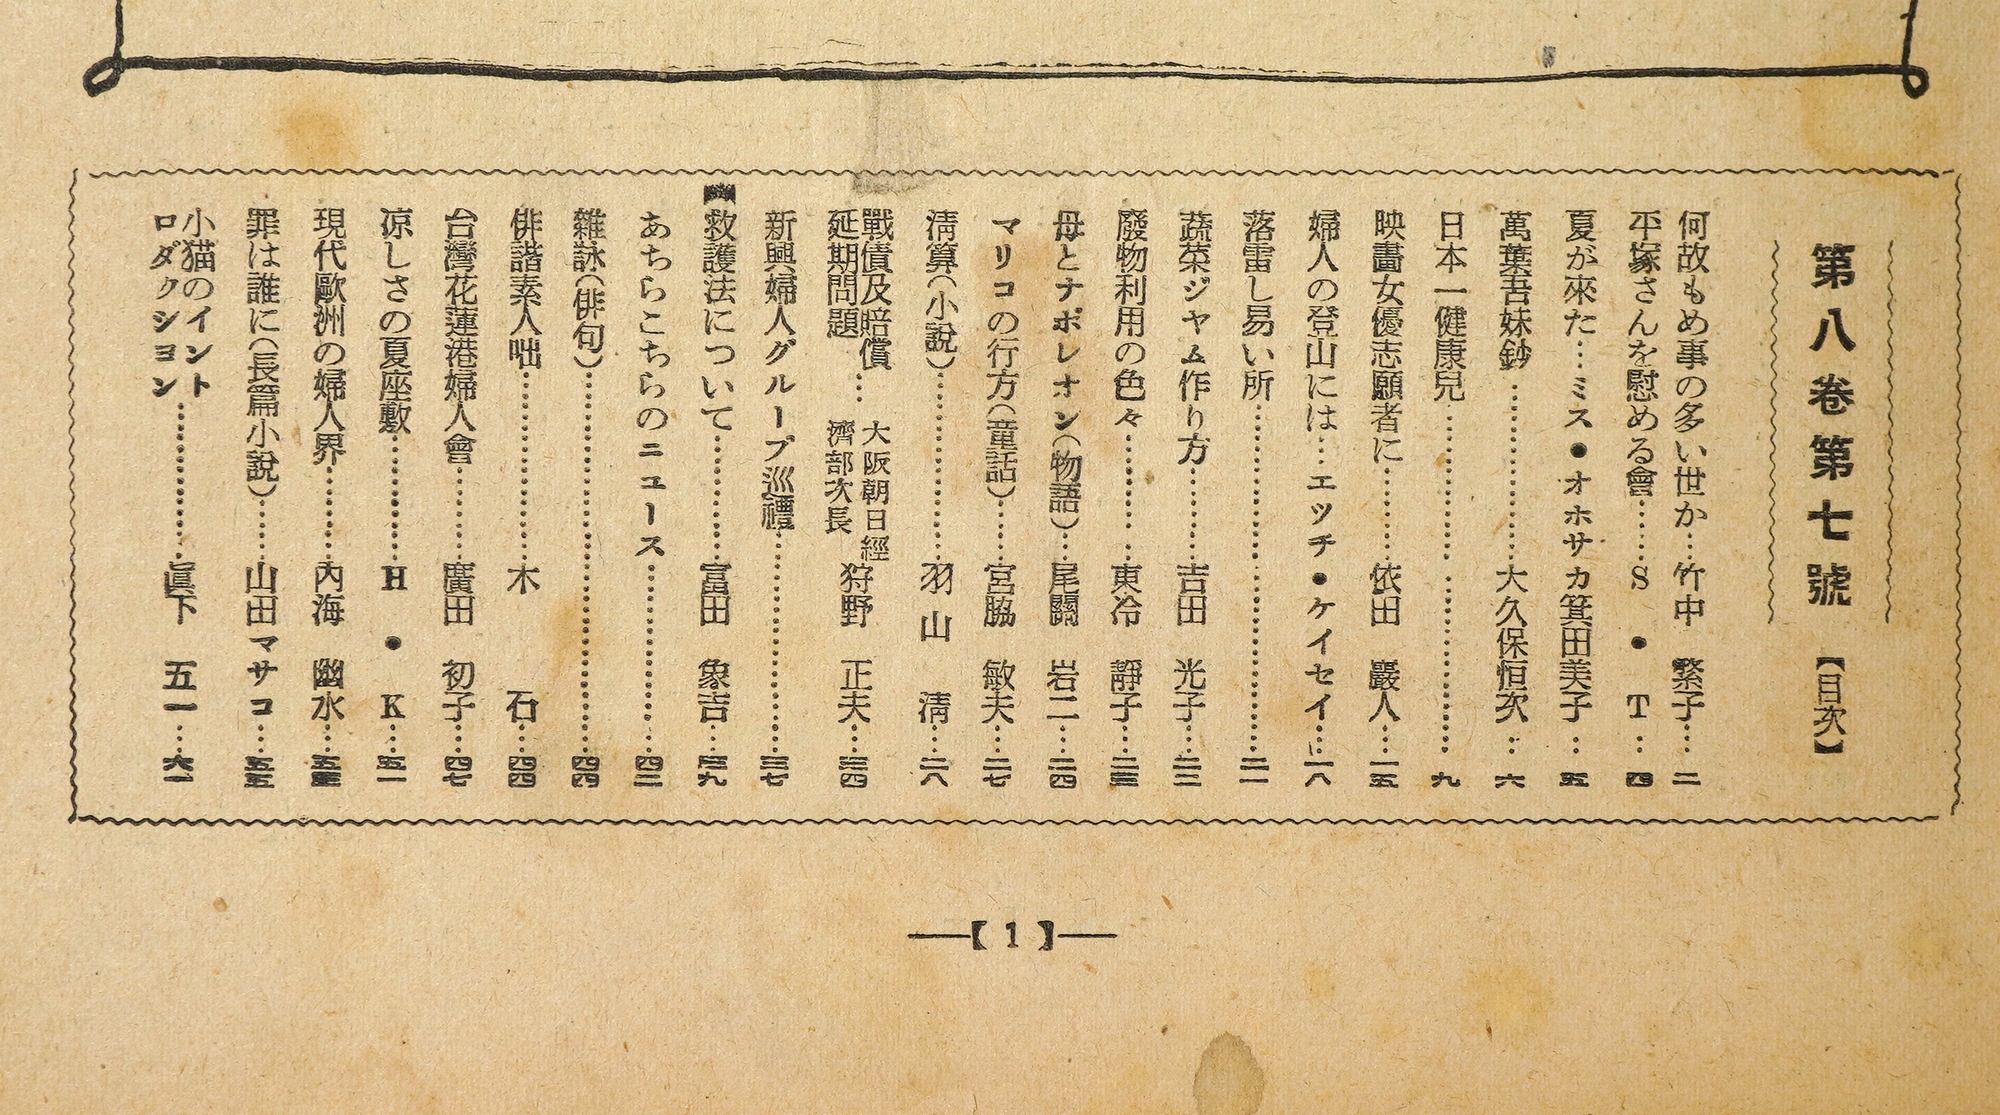 第八卷第七號【目次】
何故もめ事の多い世か…竹中 繁子…二
平塚さんを慰める會……S・T…四
夏が來た…ミス・オホサカ箕田美子…五
萬葉吾妹鈔………………大久保恒次…六
日本一健康兒………………………九
映畫女優志願者に…………依田 巖人…一五
婦人の登山には…エツチ・ケイセイ…一八
落雷し易い所………………………二一
蔬菜ジヤム作り方…………吉田 光子…二三
廢物利用の色々……………東冷 靜子…二三
母とナポレオン(物語)……尾關 岩二…二四
マリコの行方(童話)………宮脇 敏夫…二七
淸算(小說)…………………羽山 淸…二八
戰債及賠償延期問題…大阪朝日經濟部次長 狩野 正夫…三四
新興婦人グループ巡禮……………三七
救護法について……………富田 象吉…三九
あちらこちらのニュース…………四二
雜詠(俳句)…………………………四四
俳諧素人咄…………………木 石…四四
台灣花蓮港婦人會…………廣田 初子…四七
凉しさの夏座敷……………H・K…五一
現代歐洲の婦人界…………內海 幽水…五三
罪は誰に(長篇小說)………山田マサコ…五五
小猫のイントロダクシヨン…………眞下 五一…六一
【1】